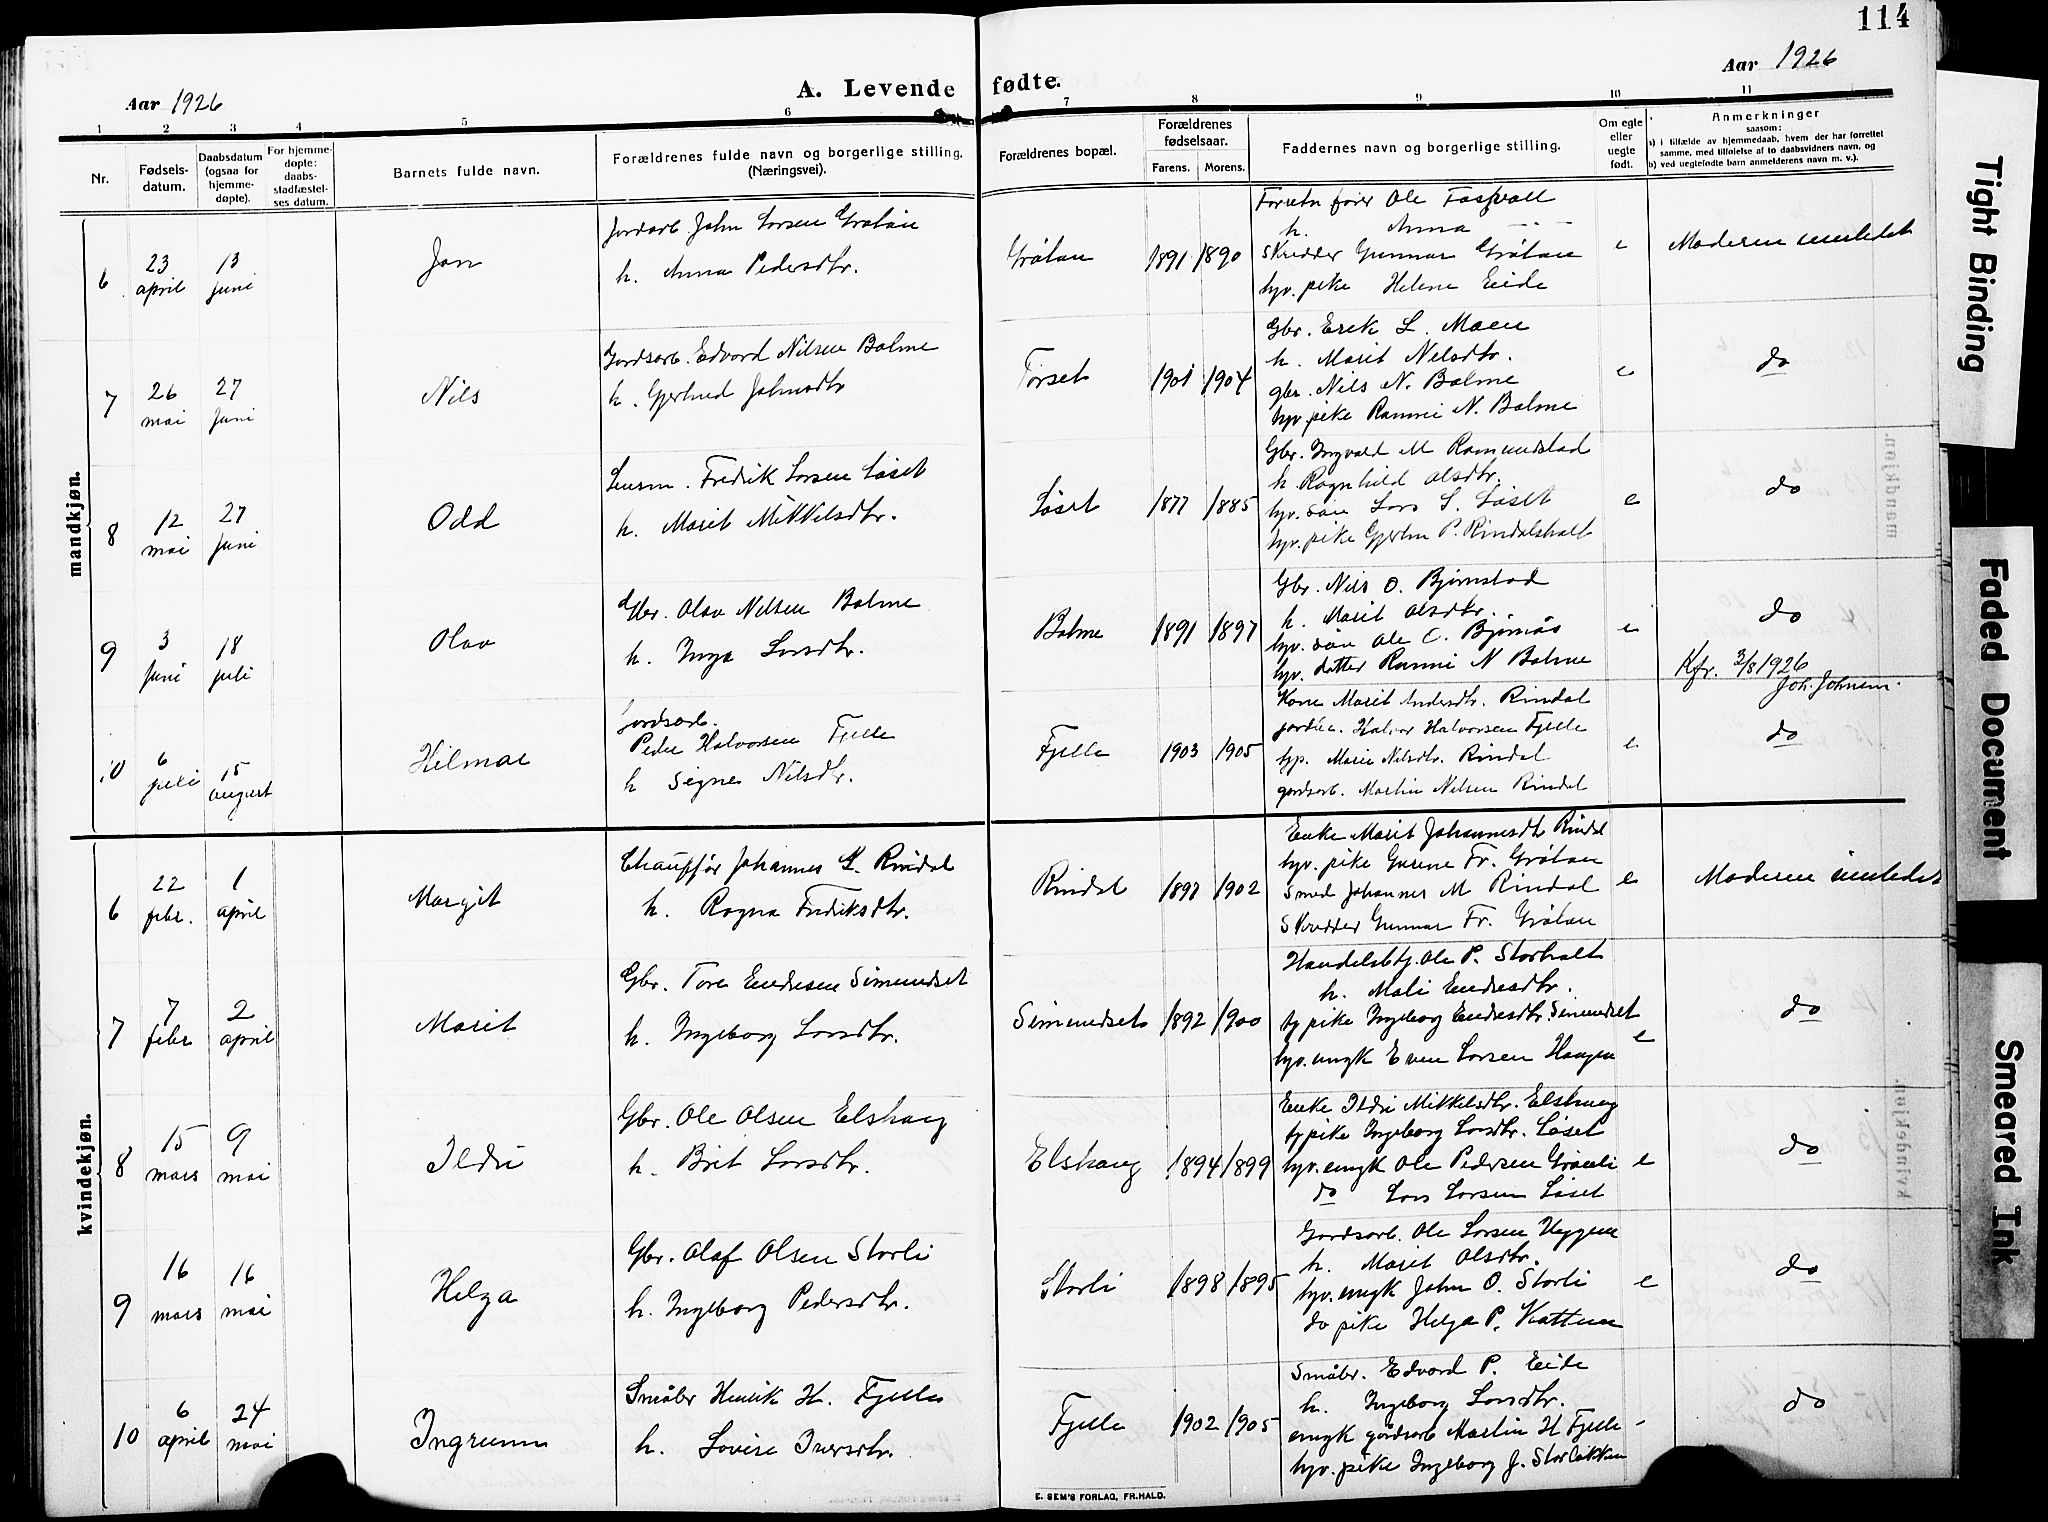 114
Aar 1926
A. Levende fødte.
Aar 1926
1 2 3 4 5 6 7 8 9 10 11
Nr.
Fødsels-
datum.
Daabsdatum
(ogsaa for
hjemme-
døpte).
For hjemme-
døpte:
daabs-
stadfæstel-
ses datum.
Barnets fulde navn.
Forældrenes fulde navn og borgerlige stilling.
(Næringsvei).
Forældrenes bopæl.
Forældrenes
fødselsaar.
Farens. Morens.
Faddernes navn og borgerlige stilling.
Om egte
eller
uegte
født.
Anmerkninger
saasom:
a) i tilfælde av hjemmedaab, hvem der har forrettet
samme, med tilføielse af to daabsvidners navn, og
b) ved uegtefødte barn anmelderens navn m. v.).
mandkjøn.
6
23
april
13
juni
Jon
Jordarb. John Larsen Grøtan
h. Anna Pedersdtr.
Grøtan
1891 1890
Forretn fører Ole
h. Anna
Skredder Gunnar Grøtan
hjv. pike Helene Eide
e
Moderen innledet
7
26
mai
27
juni
Nils
Jordsarb. Edvard Nilsen Bolme
h. Gjertrud Johnsdtr
Torset
1901 1904
Gbr. Erik L. Moen
h. Marit Nilsdtr.
gbr. Nils N. Bolme
hjv. pike Ranni N. Bolme
e
do
8
12
mai
27
juni
Odd
Lensm. Fredrik Larsen Løset
h. Marit Mikkelsdtr.
Løset
1877 1885
Gbr. Ingvald M Romundstad
h. Ragnhild Olsdtr.
hjv. søn Lars L. Løset
hjv. pike P. Rindalsholt
e
do
9
3
juni
18
juli
Olav
Gbr. Olav Nilsen Bolme
h. Inga Larsdtr.
Bolme
1891 1897
Gbr. Nils O. Bjørnstad
h. Marit Olsdtr.
hjv. søn Ole O. Bjørnås
hjv. datter Ranni N Bolme
e
do
Kfr. 3/8 1926
Joh. Johnsen.
10
6
juli
15
august
Hilmar
Jordsarb.
Peder Halvorsen Fjelle
h Signe Nilsdtr.
Fjelle
1903 1905
Kone Marit Andersdtr. Rindal
Halvor Halvorsen Fjelle
hjp. Marie Nilsdtr. Rindal
gårdsarb. Martin Nilsen Rindal
e
do
kvindekjøn.
6
22
febr.
1
april
Margit
Chauffør Johannes L. Rindal
h. Ragna Fredriksdtr.
Rindal
1897 1902
Enke Marit Johannesdtr Rindal
hjv. pike Gurine Fr. Grøtan
Smed Johannes M Rindal
Skredder Gunnar Fr. Grøtan
e
Moderen innledet
7
7
febr
2
april
Marit
Gbr. Tore Endresen Simundset
h. Ingeborg Larsdtr.
Simundset
1892 1900
Handelsbtj. Ole P. Storholt
h. Mali Endresdtr.
tj pike Ingeborg Endresdtr. Simundset
hjv. ungk Even Larsen Haugen
e
do
8
15
mars
9
mai
Ildri
Gbr. Ole Olsen Elshaug
h. Brit Larsdtr.
Elshaug
1894 1899
Enke Ildri Mikkelsdtr. Elshaug
tj pike Ingeborg Larsdtr. Løset
hjv. ungk Ole Pedersen Grønli
do Lars Larsen Løset
e
do
9
16
mars
16
mai
Helga
Gbr. Olaf Olsen Storli
h. Ingeborg Pedersdtr.
Storli
1898 1895
Gårdsarb. Ole Larsen Uggen
h. Marit Olsdtr.
hjv. ungk John O. Storli
do pike Helga P. Kattum
e
do
10
6
april
24
mai
Ingrunn
Småbr Henrik H. Fjelle
h. Lovise Iversdtr.
Fjelle
1902 1905
Småbr. Edvard P. Eide
h. Ingeborg Larsdtr.
ungk gårdsarb Martin H Fjelle
hjv. pike Ingeborg J. Storløkken
do
E. SEM'S FORLAG, FR.HALD.
Tight Binding
Faded Document
Smeared Ink